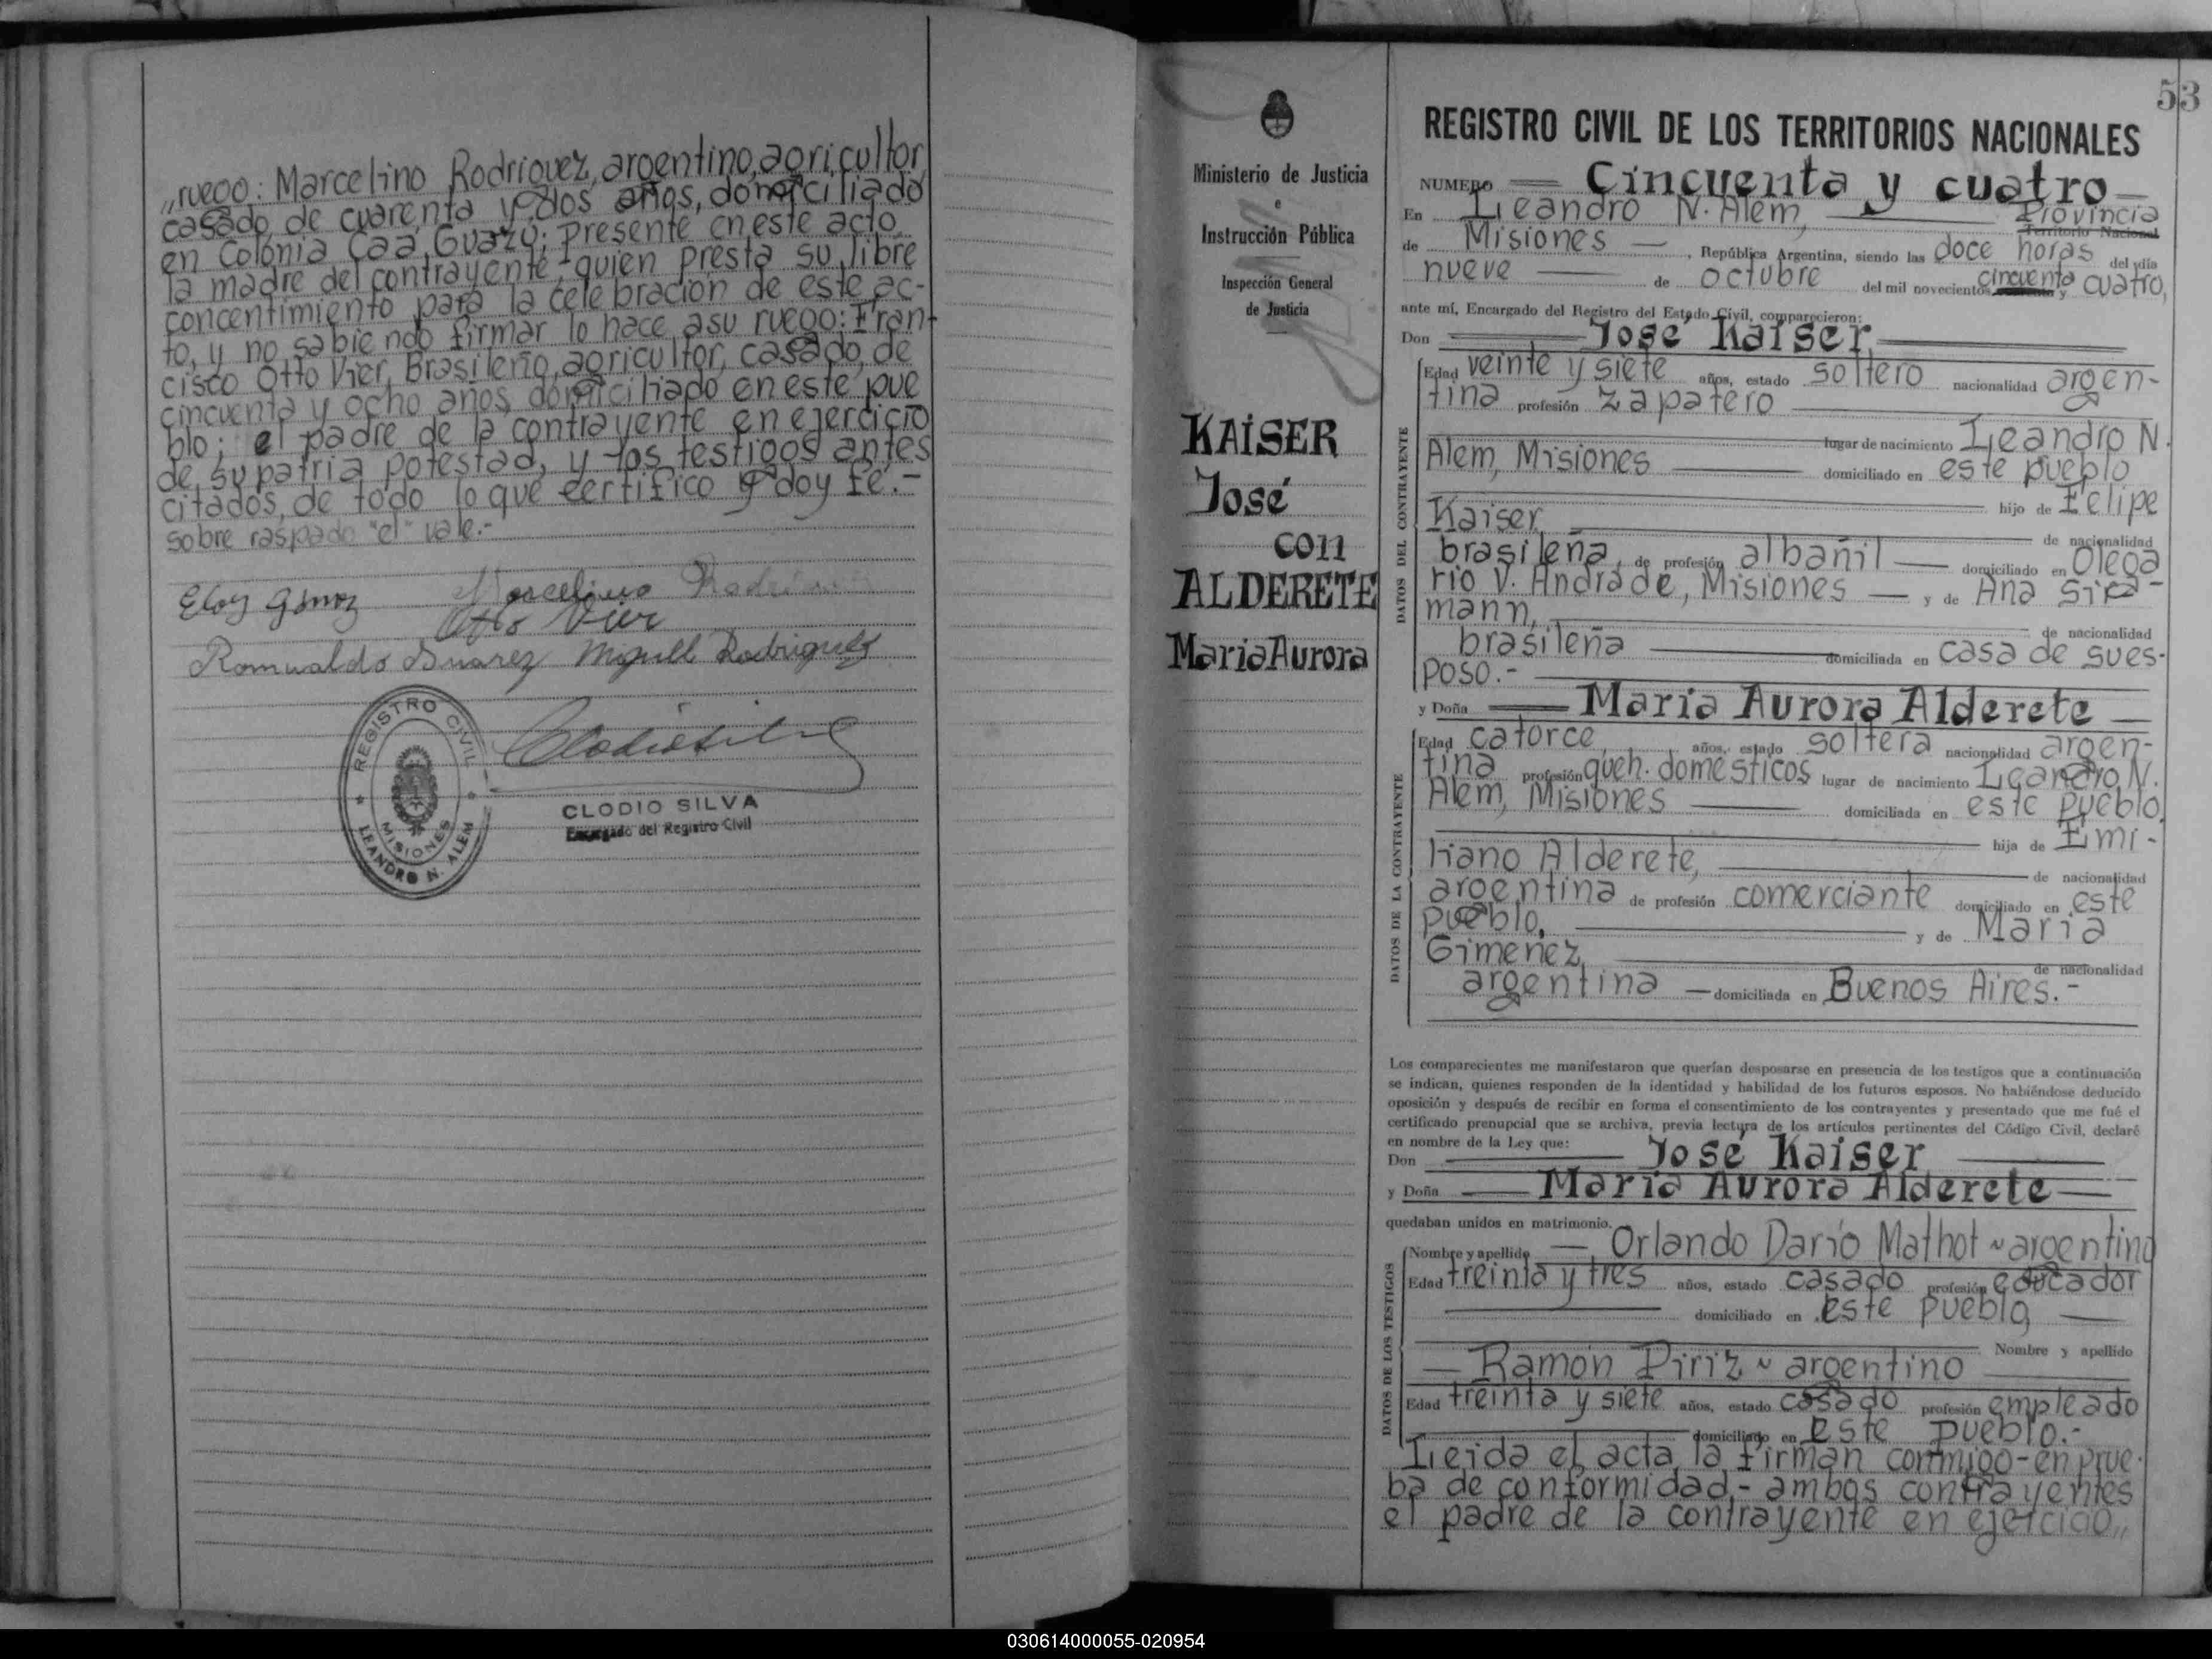 „ruego: Marcelino Rodriguez, argentino, agricultor,
casado, de cuarenta y dos años, domiciliado
en Colonia Caá Guazú; Presente en este acto
la madre del contrayente, quien presta su libre
concentimiento para la celebración de este ac-
to, y no sabiendo firmar lo hace a su ruego: Fran-
cisco Otto Vier, Brasileño, agricultor, casado, de
cincuenta y ocho años, domiciliado en este pue
blo; el padre de la contrayente en ejercicio
de su patria potestad, y los testigos antes
citados, de todo lo que certifico y doy fé.-
sobre raspado "el" vale.-
Eloy Marcelino
Otto Vier
Romualdo Suarez Miguel Rodriguez
REGISTRO CIVIL
MISIONES
LEANDRO N. ALEM
CLODIO SILVA
Encargado del Registro Civil
53
Ministerio de Justicia
e
Instrucción Pública
Inspección General
de Justicia
KAISER
José
con
ALDERETE
Maria Aurora
REGISTRO CIVIL DE LOS TERRITORIOS NACIONALES
NUMERO Cincuenta y cuatro
En Leandro N. Alem, Provincia
Territorio Nacional
de Misiones, República Argentina, siendo las doce horas del día
nueve de octubre del mil novecientos cincuenta y cuatro,
ante mí, Encargado del Registro del Estado Civil, comparecieron:
Don José Kaiser
DATOS DEL CONTRAYENTE
Edad veinte y siete años, estado soltero nacionalidad argen-
tina profesión zapatero
lugar de nacimiento Leandro N.
Alem, Misiones domiciliado en este pueblo
hijo de Felipe
Kaiser, de nacionalidad
brasileña, de profesión albañil domiciliado en Olega
rio V. Andrade, Misiones y de Ana
mann, de nacionalidad
brasileña domiciliada en casa de sues-
poso.-
y Doña Maria Aurora Alderete
DATOS DE LA CONTRAYENTE
Edad catorce, años, estado soltera nacionalidad argen-
tina profesión queh. domésticos lugar de nacimiento Leandro N.
Alem, Misiones domiciliada en este pueblo,
hija de Emi-
liano Alderete, de nacionalidad
argentina de profesión comerciante domiciliado en este
pueblo, y de Maria
Gimenez, de nacionalidad
argentina domiciliada en Buenos Aires.-
Los comparecientes me manifestaron que querían desposarse en presencia de los testigos que a continuación
se indican, quienes responden de la identidad y habilidad de los futuros esposos. No habiéndose deducido
oposición y después de recibir en forma el consentimiento de los contrayentes y presentado que me fué el
certificado prenupcial que se archiva, previa lectura de los artículos pertinentes del Código Civil, declaré
en nombre de la Ley que:
Don José Kaiser
y Doña Maria Aurora Alderete
quedaban unidos en matrimonio.
DATOS DE LOS TESTIGOS
Nombre y apellido Orlando Darío Mathot ~ argentino
Edad treinta y tres años, estado casado profesión educador
domiciliado en este pueblo,
Nombre y apellido
Ramón Piriz ~ argentino
Edad treinta y siete años, estado casado profesión empleado
domiciliado en este pueblo.-
Leida el acta, la firman conmigo-en prue-
ba de conformidad,- ambos contrayentes
el padre de la contrayente en ejercicio„
030614000055-020954